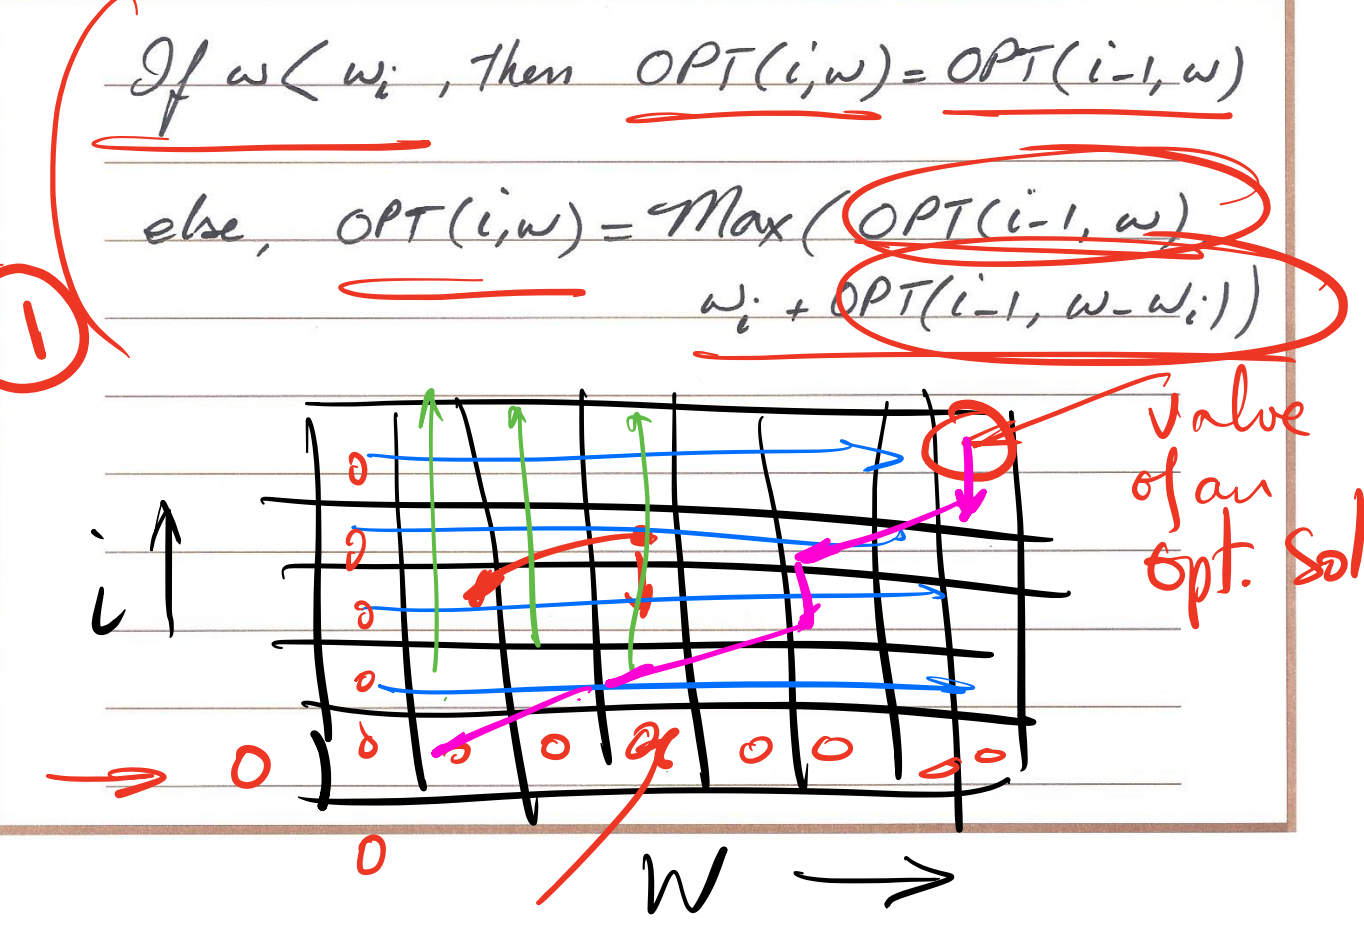 If w < wi , then OPT(i,w) = OPT(i-1, w)
else, OPT(i,w) = Max ( OPT(i-1, w)
wi + OPT(i-1, w-wi))
1
value
of an
opt. Sol
0
0
i
0
0
0 0 0 0 0 0 0 0
0
W